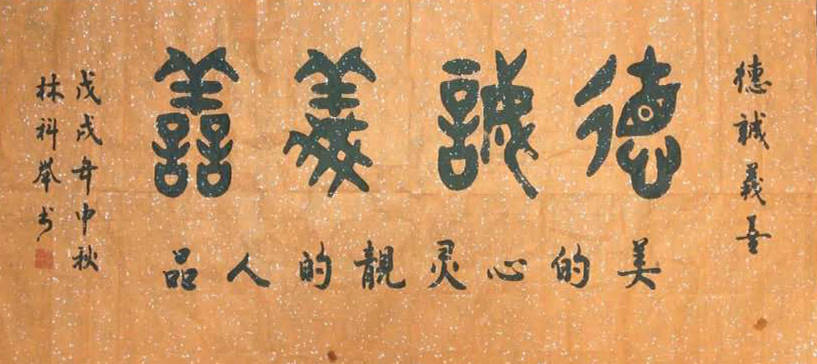 德誠義善
德誠義善
美的心灵靚的人品
戊戌年中秋
林科举书